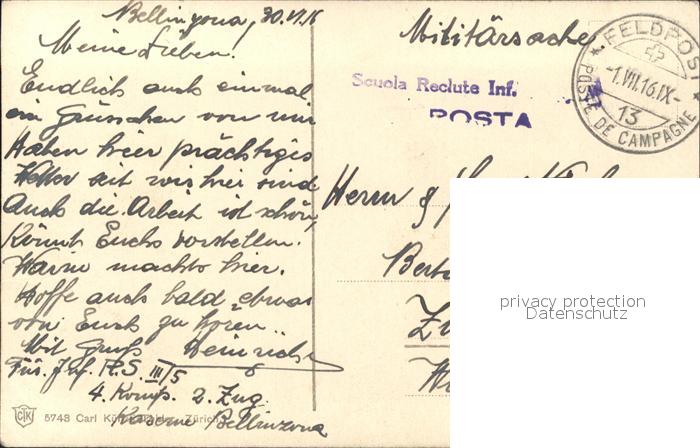 Bellinzona, 30.VI.16
Meine Lieben!
Endlich auch einmal
ein Grüsschen von mir
Haben hier prächtiges
Wetter seit wir hier sind
Auch die Arbeit ist schön,
Könnt Euchs vorstellen.
Warm machts hier.
Hoffe auch bald etwas
von Euch zu hören..
Mit Gruß Heinrich
Füs. Inf. R.S. III/5
4. Komp. 2. Zug.
Kaserne Bellinzona
5743 Carl Zürich
Militärsache
Scuola Reclute Inf.
POSTA
FELDPOST
-1.VII.16.IX-
13
POSTE DE CAMPAGNE
Herrn &
privacy protection
Datenschutz